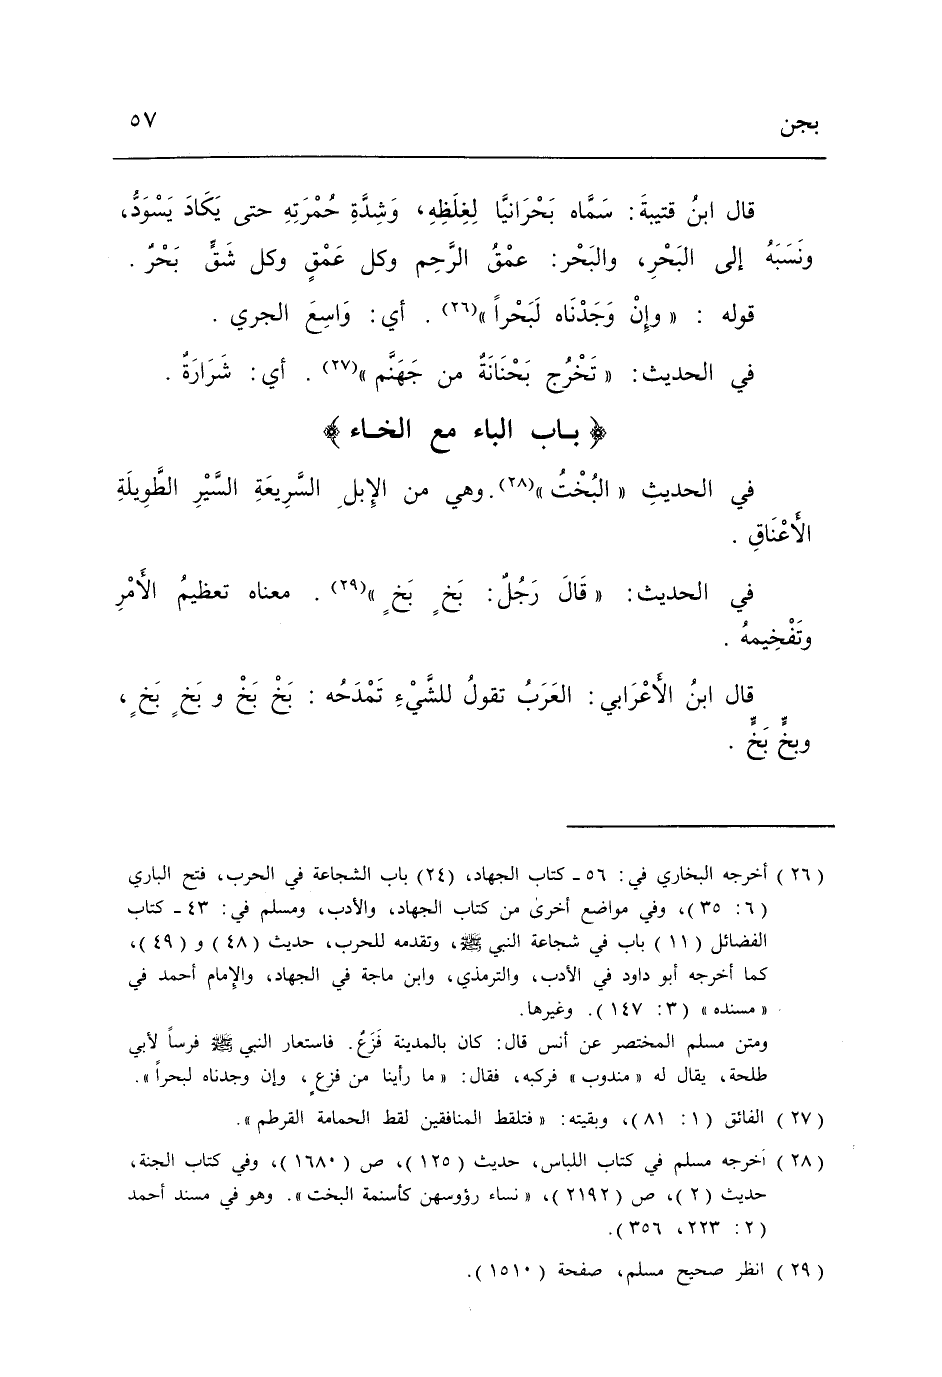 بجن ٥٧
قال ابنُ قتيبةَ: سَمَّاه بَحْرَانيًّا لِغِلَظِهِ، وَشِدَّةِ حُمْرَتِهِ حتى يَكَادَ يَسْوَدُّ،
ونَسَبَهُ إلى البَحْرِ، والبَحْر: عمْقُ الرَّحِم وكل عَمْقٍ وكل شَقٍّ بَحْرٌ .
قوله : « وإنْ وَجَدْنَاه لَبَحْراً »(٢٦) . أي: وَاسِعَ الجري .
في الحديث: « تَخْرُج بَحْنَانَةٌ من جَهَنَّم »(٢٧) . أي: شَرَارَةٌ .
﴿ بـاب الباء مع الخـاء ﴾
في الحديثِ « البُخْتُ »(٢٨). وهي من الإِبلِ السَّرِيعَةِ السَّيْرِ الطَّوِيلَةِ
الأَعْنَاقِ .
في الحديث: « قَالَ رَجُلٌ: بَخٍ بَخٍ »(٢٩) . معناه تعظيمُ الأَمْرِ
وتَفْخِيمهُ .
قال ابنُ الأَعْرَابي: العَرَبُ تقولُ للشَّيْءِ تَمْدَحُه : بَخْ بَخْ و بَخٍ بَخٍ ،
وبخٍّ بَخٍّ .
( ٢٦ ) أخرجه البخاري في: ٥٦ ـ كتاب الجهاد، (٢٤) باب الشجاعة في الحرب، فتح الباري
( ٦: ٣٥ )، وفي مواضع أخرىٰ من كتاب الجهاد، والأدب، ومسلم في: ٤٣ ـ كتاب
الفضائل ( ١١ ) باب في شجاعة النبي ﷺ، وتقدمه للحرب، حديث ( ٤٨ ) و ( ٤٩ )،
كما أخرجه أبو داود في الأدب، والترمذي، وابن ماجة في الجهاد، والإِمام أحمد في
« مسنده » ( ٣: ١٤٧ ). وغيرها.
ومتن مسلم المختصر عن أنس قال: كان بالمدينة فَزَعٌ. فاستعار النبي ﷺ فرساً لأبي
طلحة، يقال له « مندوب » فركبه، فقال: « ما رأينا من فزعٍ، وإن وجدناه لبحراً ».
( ٢٧ ) الفائق ( ١: ٨١ )، وبقيته: « فتلقط المنافقين لقط الحمامة القرطم ».
( ٢٨ ) أخرجه مسلم في كتاب اللباس، حديث ( ١٢٥ )، ص ( ١٦٨٠ )، وفي كتاب الجنة،
حديث ( ٢ )، ص ( ٢١٩٢ )، « نساء رؤوسهن كأسنمة البخت ». وهو في مسند أحمد
( ٢: ٢٢٣، ٣٥٦ ).
( ٢٩ ) انظر صحيح مسلم، صفحة ( ١٥١٠ ).